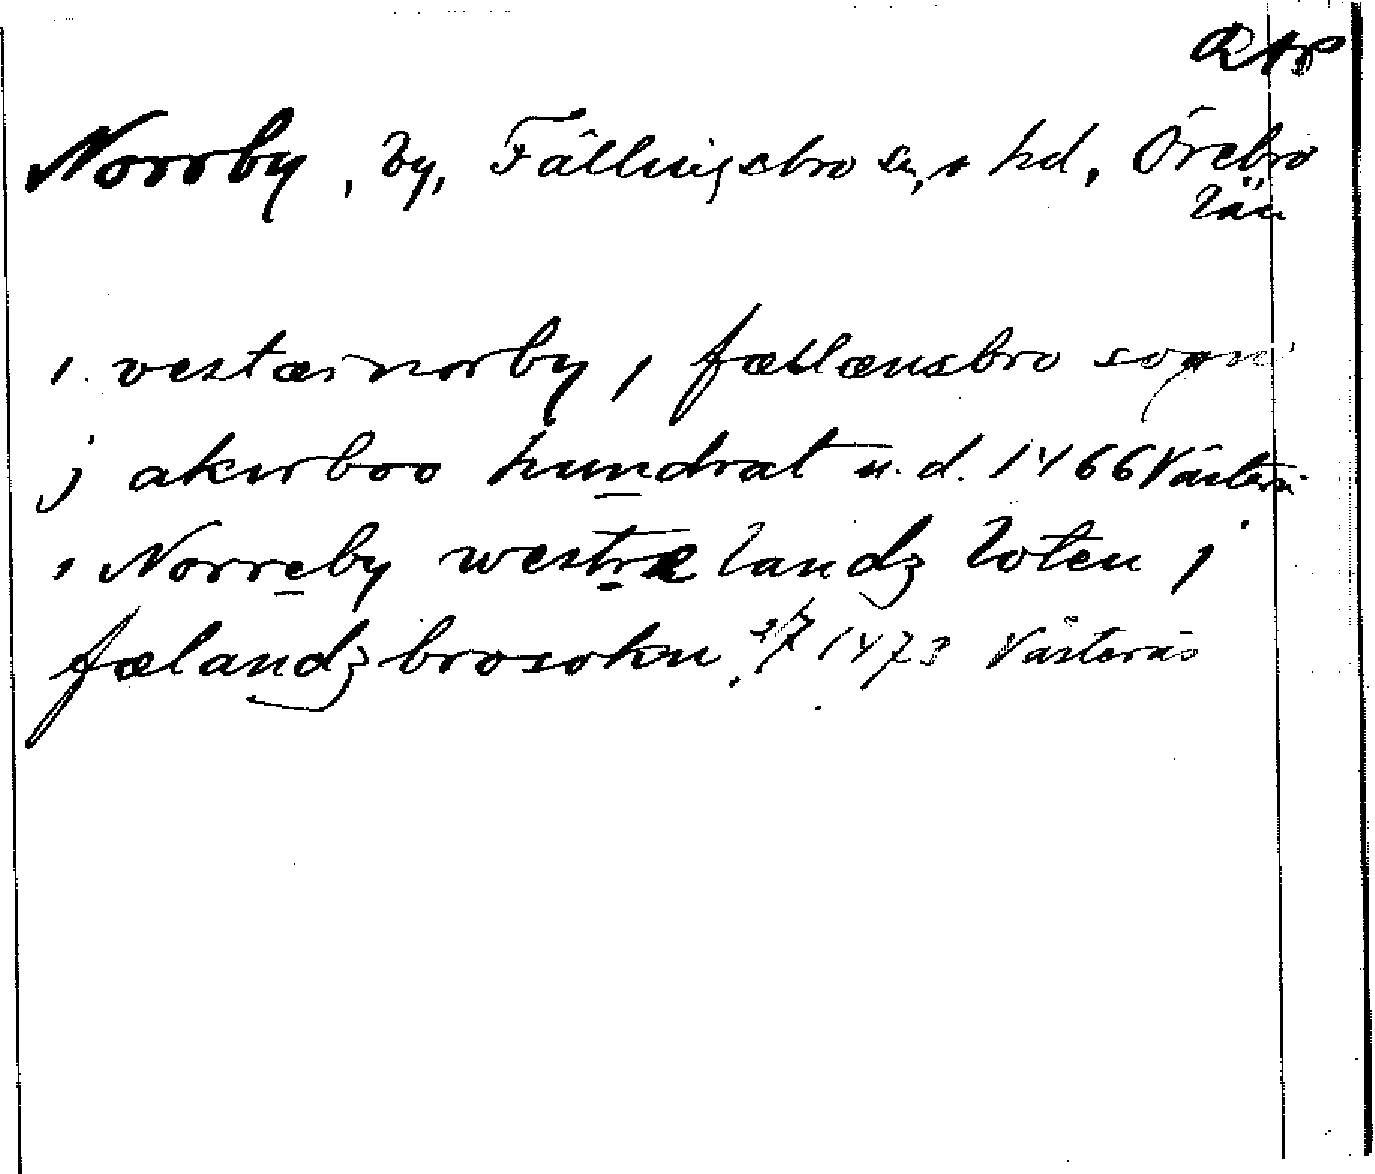 RAp
Norrby, by, Fällingsbro sn, o hd, Örebro
län
i vestærnorby i fællænsbro sogn
j akirboo hundrat u.d. 1466 Västerås
i Norreby westræ landz loten i
fælandzbrosokn 2/7 1473 Västerås